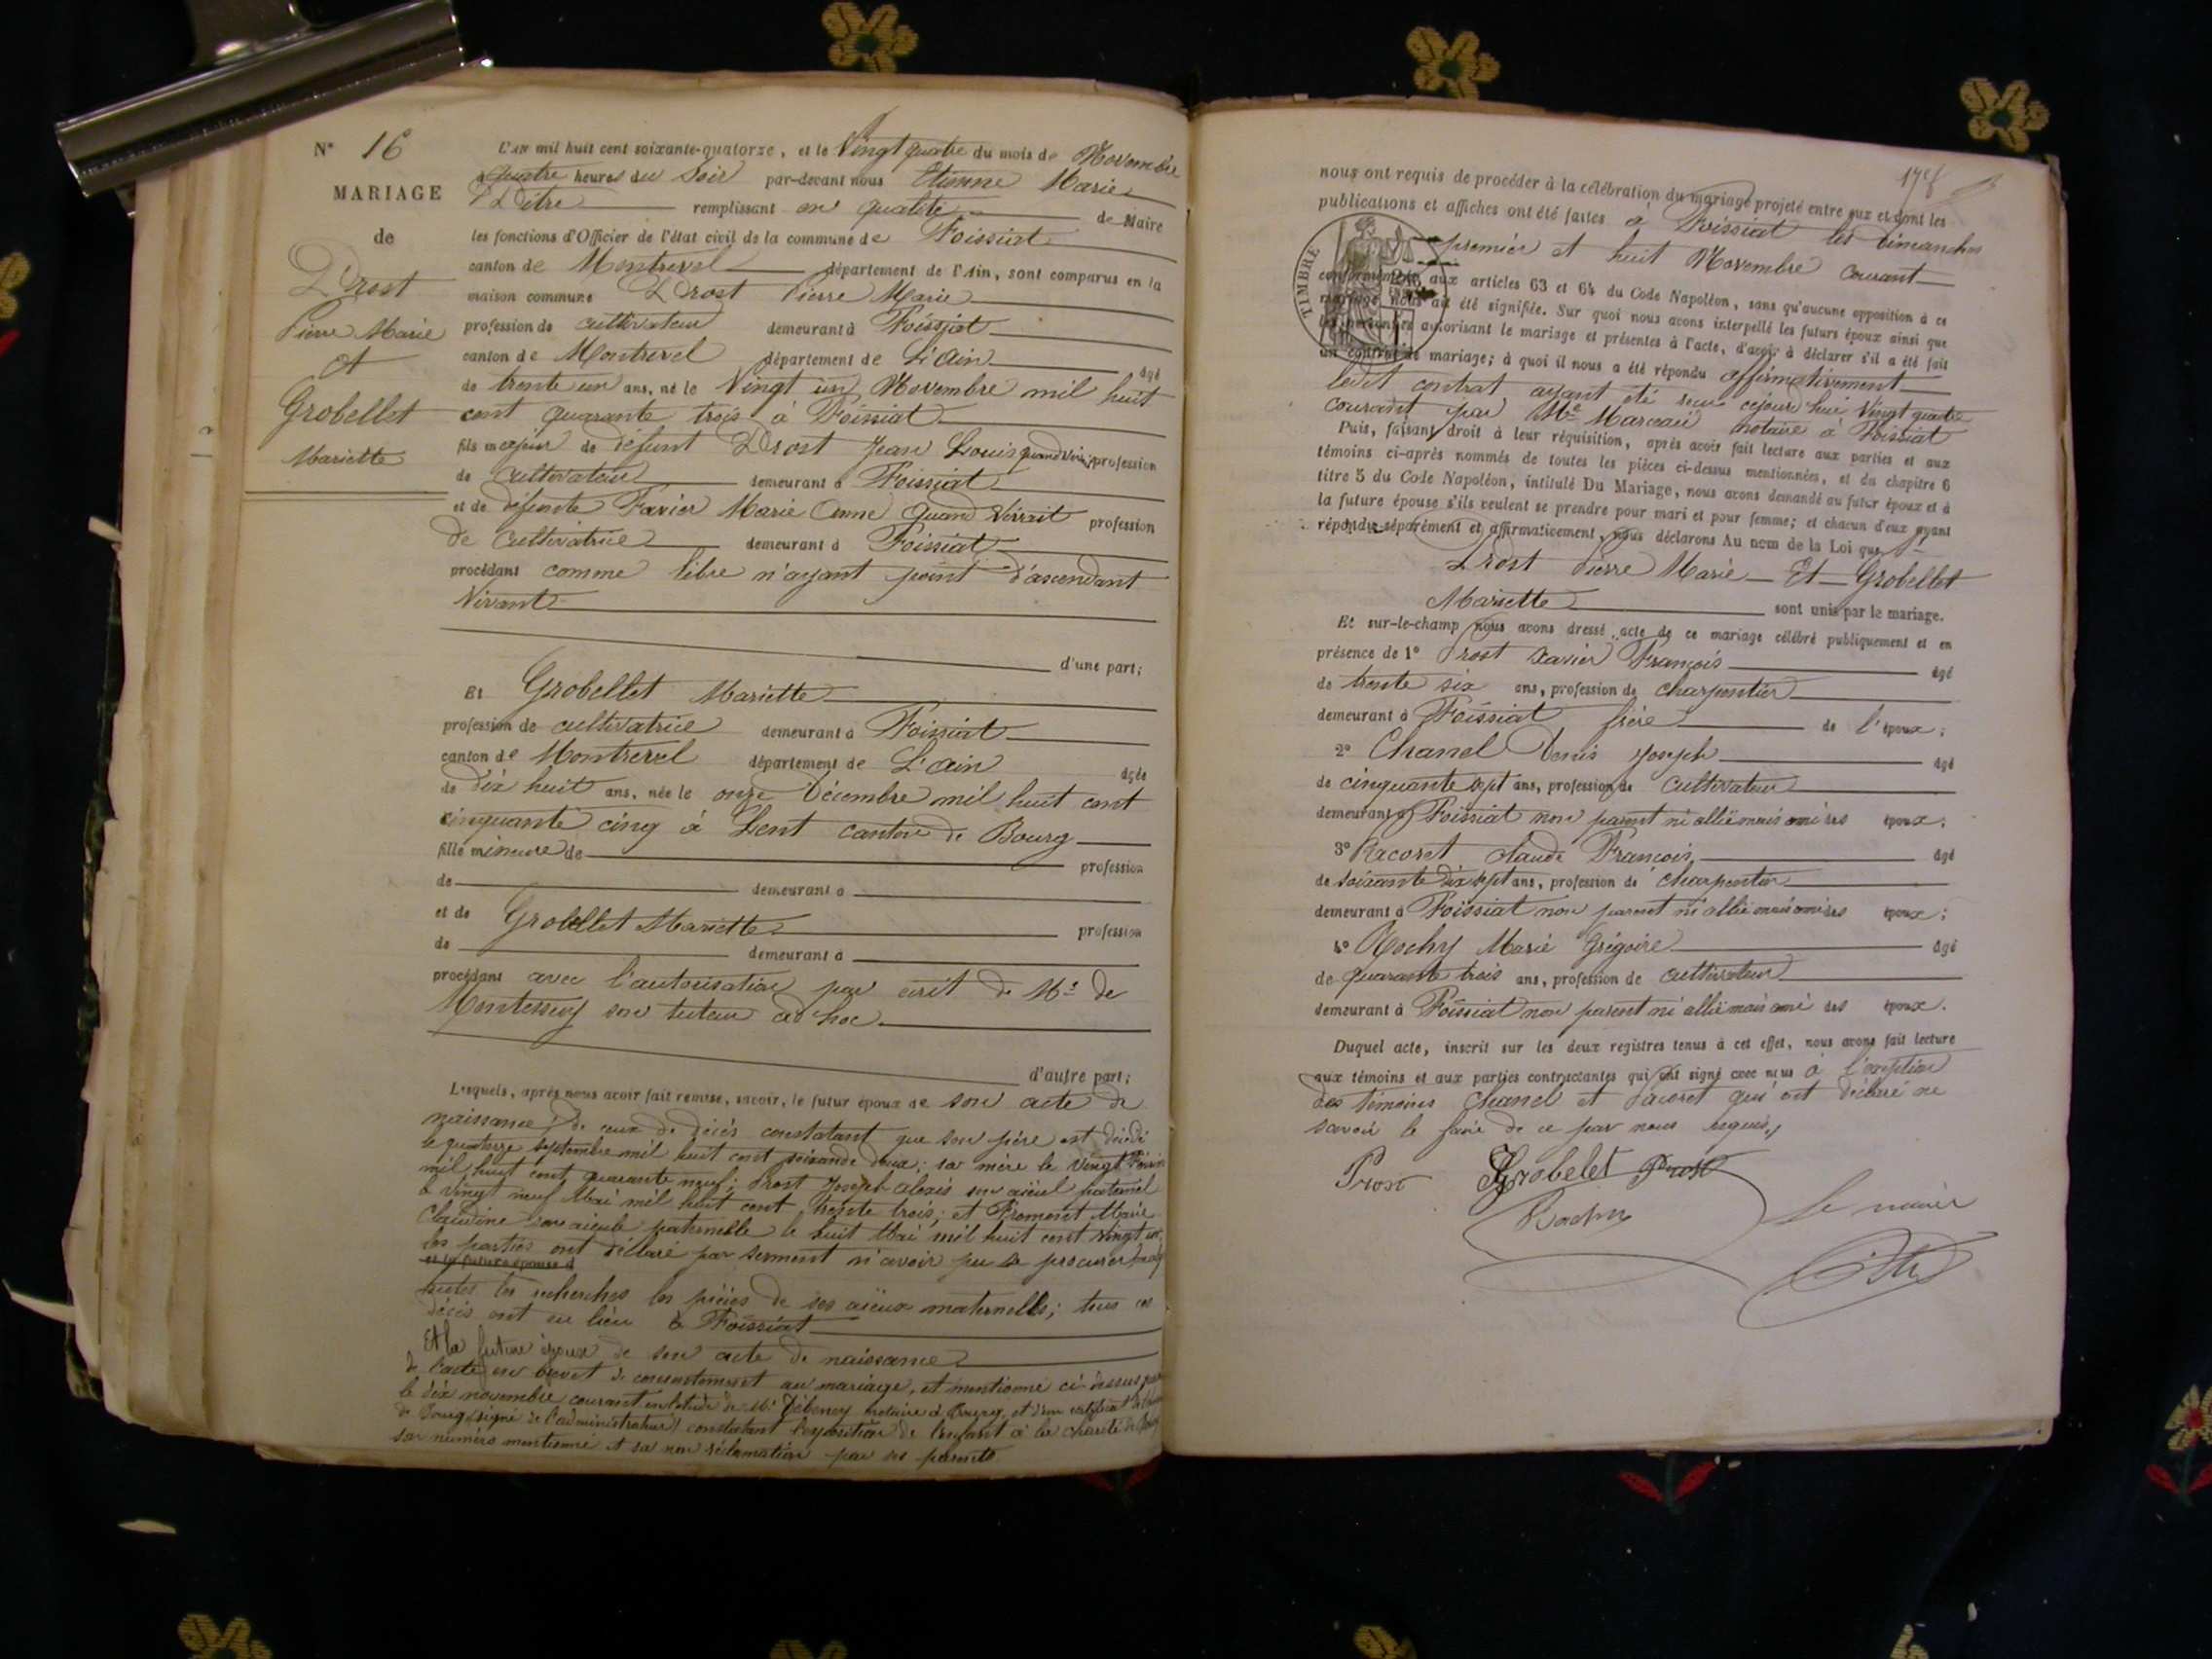 N° 16
MARIAGE
de
Prost
Pierre Marie
et
Grobellet
Mariette
L'An mil huit cent soixante-quatorze, et le Vingt quatre du mois de Novembre
à quatre heures du Soir par-devant nous Etienne Marie
Pitre remplissant en qualité de Maire
les fonctions d'Officier de l'état civil de la commune de Foissiat
canton de Montrevel département de l'Ain, sont comparus en la
maison commune Prost Pierre Marie
profession de cultivateur demeurant à Foissiat
canton de Montrevel département de L'ain âgé
de trente un ans, né le Vingt un Novembre mil huit
cent quarante trois à Foissiat
fils majeur de défunt Prost Jean Louis quand vivait profession
de cultivateur demeurant à Foissiat
et de défunte Favier Marie Anne quand vivait profession
de cultivatrice demeurant à Foissiat
procédant comme libre n'ayant point d'ascendant
Vivant
d'une part;
Et Grobellet Mariette
profession de cultivatrice demeurant à Foissiat
canton de Montrevel département de L'ain âgée
de dix huit ans, née le onze Décembre mil huit cent
cinquante cinq à Lent canton de Bourg
fille mineure de profession
de demeurant à
et de Grobellet Mariette profession
de demeurant à
procédant avec l'autorisation par écrit de Mr de
Montessuy son tuteur ad hoc
d'autre part;
Lesquels, après nous avoir fait remise, savoir, le futur époux de son acte de
naissance de ceux de décès constatant que son père est décédé
le quatorze septembre mil huit cent soixante deux; sa mère le vingt
mil huit cent quarante neuf; Prost Joseph Alexis son aïeul paternel
le vingt neuf Mai mil huit cent trente trois; et Marie
Claudine son aïeule paternelle le huit Mai mil huit cent vingt un
les parties ont déclaré par serment n'avoir pu se procurer
et la future épouse d
toutes les recherches les pièces de ses aïeux maternelles; tous ces
décès ont eu lieu à Foissiat
Et la future épouse de son acte de naissance
de l'acte en brevet de consentement au mariage, et mentionné ci dessus
le dix novembre courant en l'étude de Me notaire à Bourg, et d'un certificat
de Bourg (signé de l'administrateur) constatant l'exposition de l'enfant à la charité de
son numéro mentionné et sa non réclamation par ses parents
nous ont requis de procéder à la célébration du mariage projeté entre eux et dont les
publications et affiches ont été faites à Foissiat les dimanches
premier et huit Novembre courant
TIMBRE
conformément aux articles 63 et 64 du Code Napoléon, sans qu'aucune opposition à ce
mariage nous ait été signifiée. Sur quoi nous avons interpellé les futurs époux ainsi que
les personnes autorisant le mariage et présentes à l'acte, d'avoir à déclarer s'il a été fait
un contrat de mariage; à quoi il nous a été répondu affirmativement
ledit contrat ayant été reçu cejourd'hui Vingt quatre
courant par Me Marcau notaire à Foissiat
Puis, faisant droit à leur réquisition, après avoir fait lecture aux parties et aux
témoins ci-après nommés de toutes les pièces ci-dessus mentionnées, et du chapitre 6
titre 5 du Code Napoléon, intitulé Du Mariage, nous avons demandé au futur époux et à
la future épouse s'ils veulent se prendre pour mari et pour femme; et chacun d'eux ayant
répondu séparément et affirmativement, nous déclarons Au nom de la Loi que
Prost Pierre Marie Et Grobellet
Mariette sont unis par le mariage.
Et sur-le-champ nous avons dressé acte de ce mariage célébré publiquement et en
présence de 1° Prost Xavier François âgé
de trente six ans, profession de charpentier
demeurant à Foissiat frère de l'époux;
2° Chanel Denis Joseph âgé
de cinquante sept ans, profession de cultivateur
demeurant à Foissiat non parent ni allié mais ami des époux;
3° Racoret claude François âgé
de soixante dix sept ans, profession de charpentier
demeurant à Foissiat non parent ni allié mais ami des époux;
4° Rochy Marie Grégoire âgé
de quarante trois ans, profession de cultivateur
demeurant à Foissiat non parent ni allié mais ami des époux.
Duquel acte, inscrit sur les deux registres tenus à cet effet, nous avons fait lecture
aux témoins et aux parties contractantes qui ont signé avec nous à l'exception
des témoins Chanel et Racoret qui ont déclaré ne
savoir le faire de ce par nous requis
Prost Grobelet Prost
Rochy le maire
Pitre